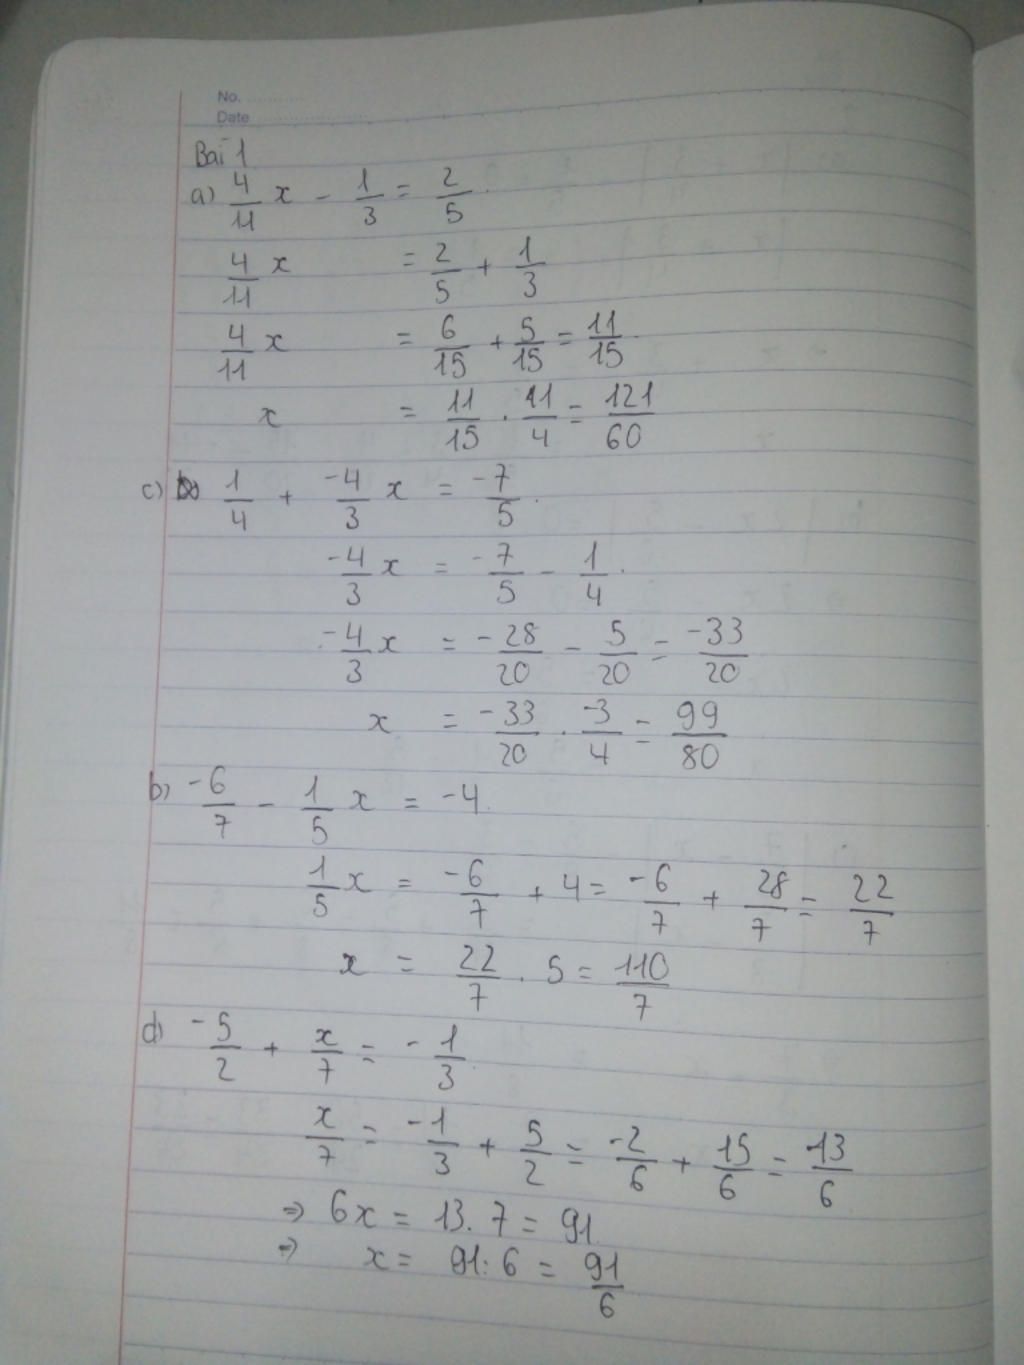 No. ............
Date .....................
Bài 1
a) 4/11 x - 1/3 = 2/5
4/11 x = 2/5 + 1/3
4/11 x = 6/15 + 5/15 = 11/15
x = 11/15 . 11/4 = 121/60
c) 1/4 + -4/3 x = -7/5
-4/3 x = -7/5 - 1/4
-4/3 x = -28/20 - 5/20 = -33/20
x = -33/20 . -3/4 = 99/80
b) -6/7 - 1/5 x = -4
1/5 x = -6/7 + 4 = -6/7 + 28/7 = 22/7
x = 22/7 . 5 = 110/7
d) -5/2 + x/7 = -1/3
x/7 = -1/3 + 5/2 = -2/6 + 15/6 = 13/6
⇒ 6x = 13.7 = 91
⇒ x = 91:6 = 91/6